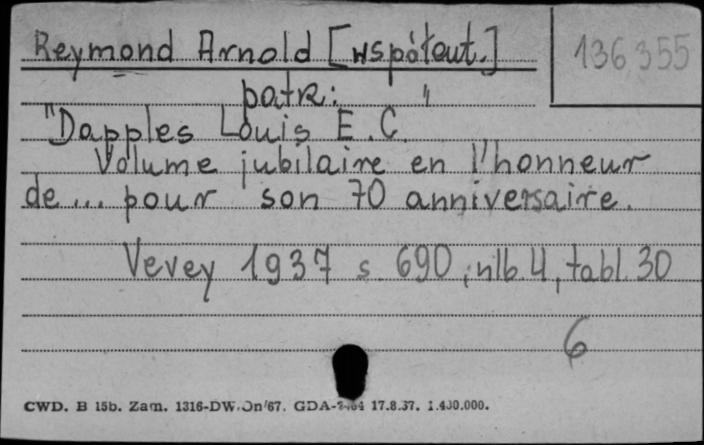 Reymond Arnold [współaut.]
136355
patrz:
"Dapples Louis E.C."
Volume jubilaire en l'honneur
de... pour son 70 anniversaire.
Vevey 1937 s. 690, nlb. 4, tabl. 30
6
CWD. B 15b. Zam. 1316-DW. Dn/67. GDA- 17.8.37. 1.400.000.